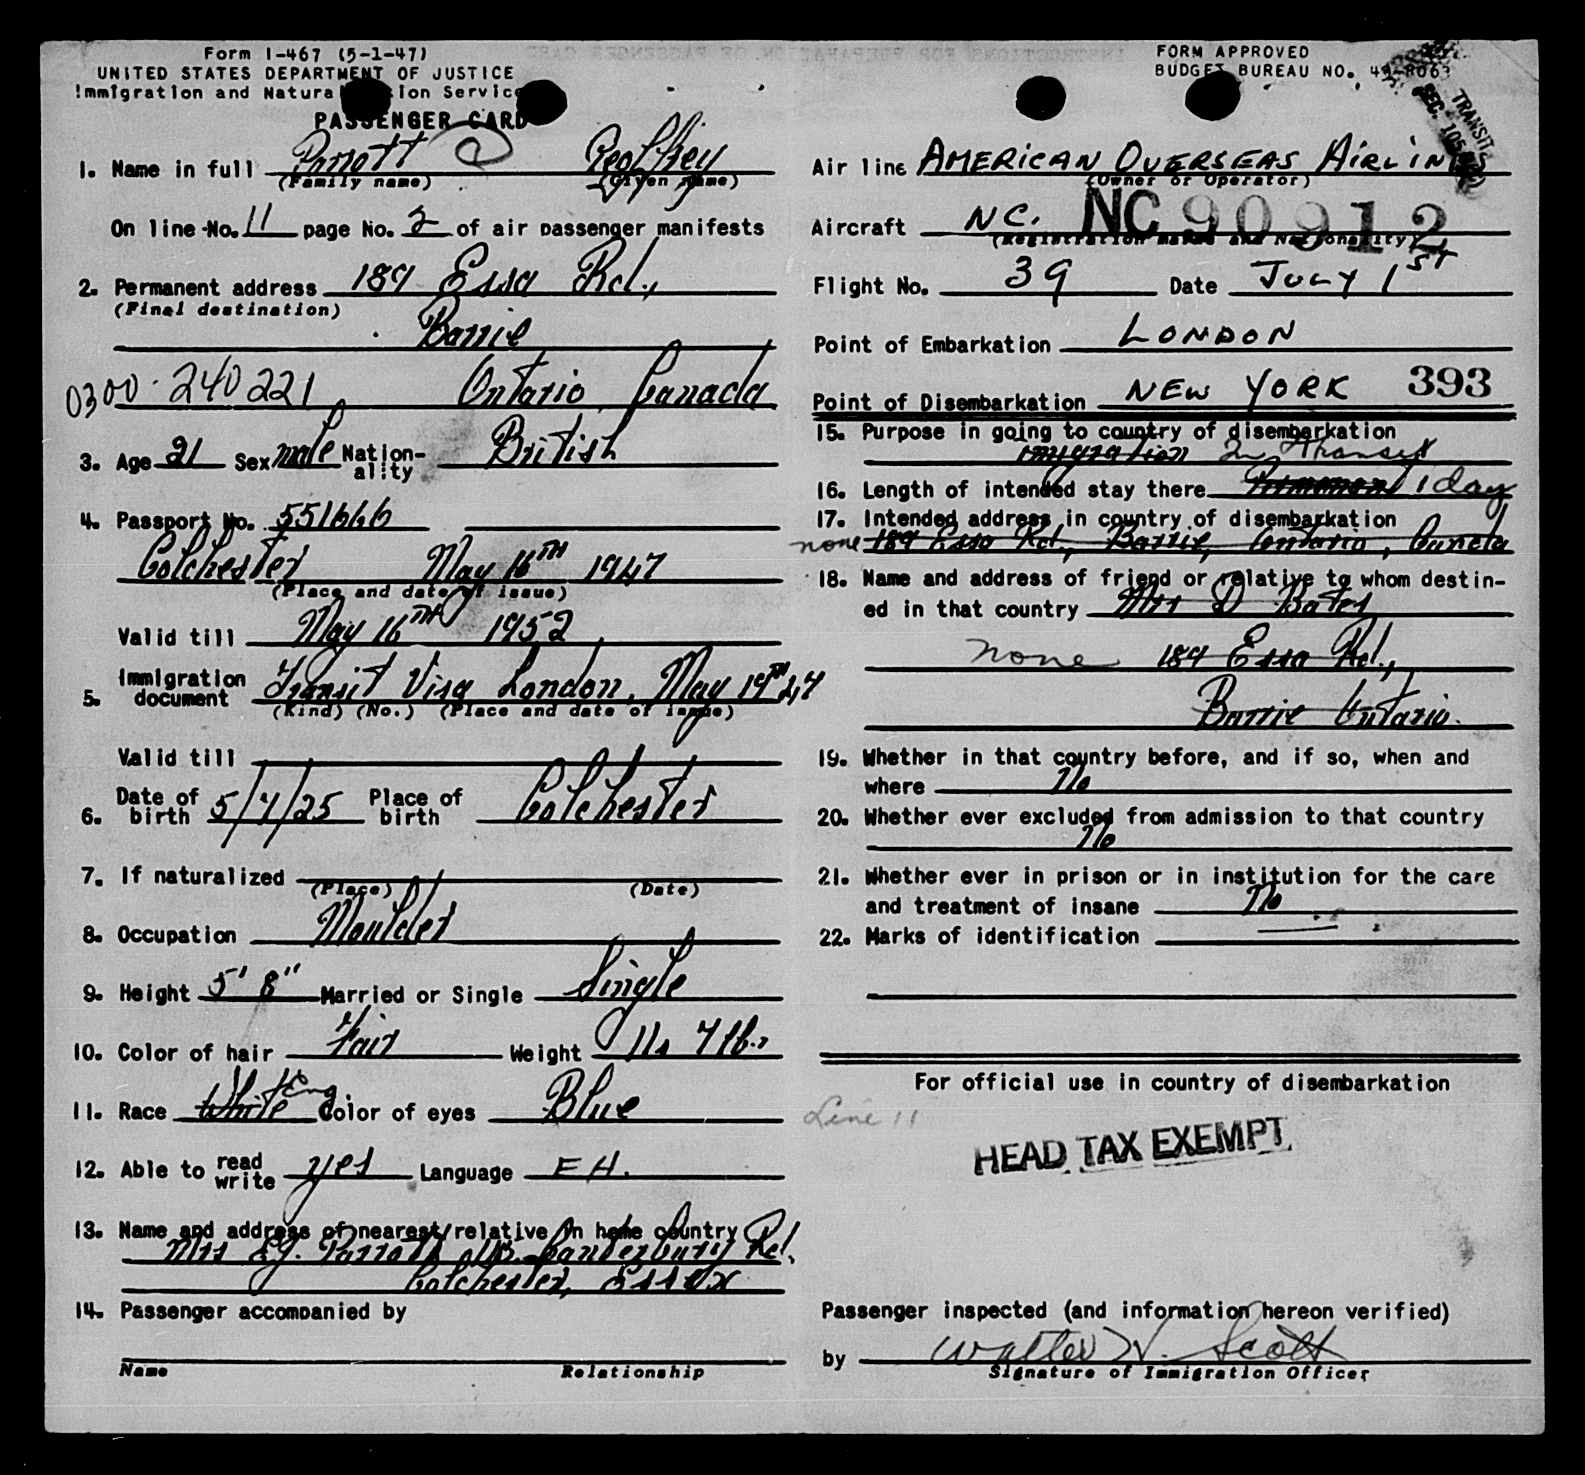 Form I-467 (5-1-47)
UNITED STATES DEPARTMENT OF JUSTICE
Immigration and Natural ion Service
PASSENGER CARD
1. Name in full Parrott Geoffrey
(Family name) (Given name)
On line No. 11 page No. 2 of air passenger manifests
2. Permanent address 189 Essa Rd.,
(Final destination)
Barrie
0300-240221 Ontario Canada
3. Age 21 Sex male Nation-ality British
4. Passport No. 551666
Colchester May 16TH 1947
(Place and date of issue)
Valid till May 16TH 1952
5. Immigration document Transit Visa London, May 19TH 47
(Kind) (No.) (Place and date of issue)
Valid till
6. Date of birth 5/7/25 Place of birth Colchester
7. If naturalized
(Place) (Date)
8. Occupation Moulder
9. Height 5' 8" Married or Single Single
10. Color of hair Fair Weight 11s 7lb.
11. Race White Eng. Color of eyes Blue
12. Able to read write yes Language EH.
13. Name and address of nearest relative in home country
Mrs E.J. Parrott Canterbury Rd.
Colchester, Essex
14. Passenger accompanied by
Name Relationship
FORM APPROVED
BUDGET BUREAU NO. 43-R063
TRANSIT
SEC. 105
Air line AMERICAN OVERSEAS AIRLINES
(Owner or Operator)
Aircraft NC. NC 90912
(Registration marks and Nationality)
Flight No. 39 Date JULY 1ST
Point of Embarkation LONDON
Point of Disembarkation NEW YORK 393
15. Purpose in going to country of disembarkation
imigration In Transit
16. Length of intended stay there Permanent 1 day
17. Intended address in country of disembarkation
none 189 Essa Rd., Barrie, Ontario, Canada
18. Name and address of friend or relative to whom destin-
ed in that country Mrs D Bates
none 189 Essa Rd.,
Barrie Ontario.
19. Whether in that country before, and if so, when and
where No
20. Whether ever excluded from admission to that country
No
21. Whether ever in prison or in institution for the care
and treatment of insane No
22. Marks of identification
For official use in country of disembarkation
Line 11
HEAD TAX EXEMPT
Passenger inspected (and information hereon verified)
by Walter W. Scott
Signature of Immigration Officer